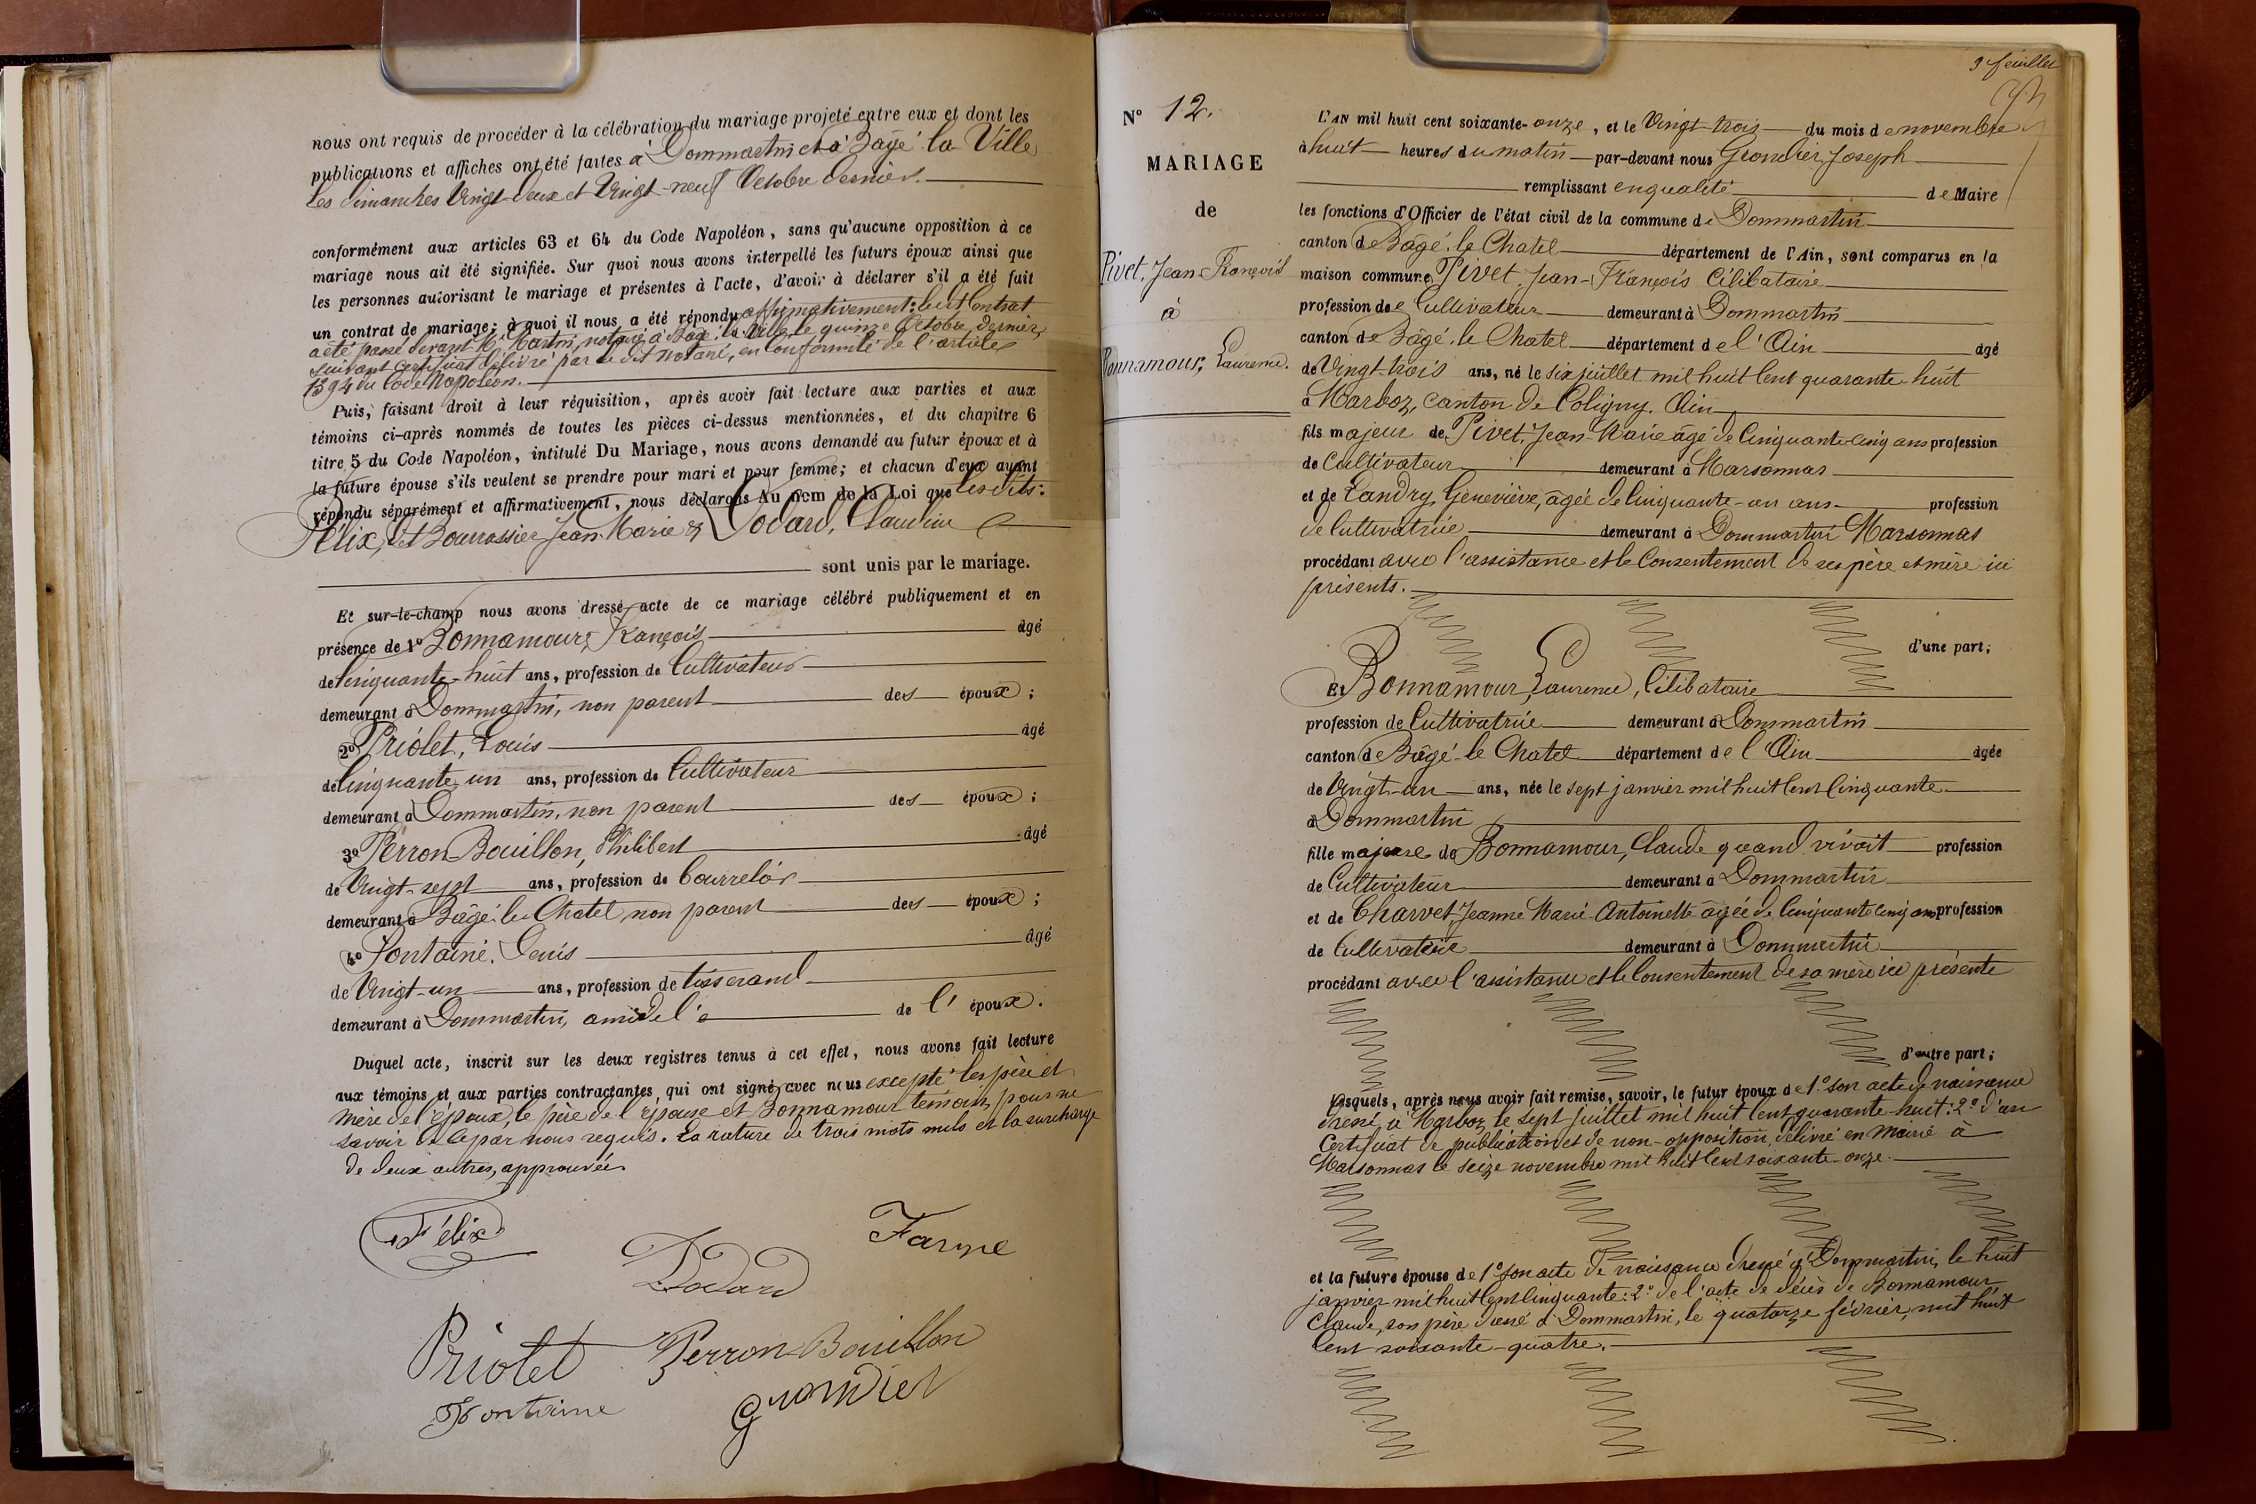 nous ont requis de procéder à la célébration du mariage projeté entre eux et dont les
publications et affiches ont été faites à Dommartin et à Bâgé la Ville
les dimanches Vingt-deux et Vingt-neuf Octobre dernier.
conformément aux articles 63 et 64 du Code Napoléon, sans qu'aucune opposition à ce
mariage nous ait été signifiée. Sur quoi nous avons interpellé les futurs époux ainsi que
les personnes autorisant le mariage et présentes à l'acte, d'avoir à déclarer s'il a été fait
un contrat de mariage; à quoi il nous a été répondu affirmativement: ledit Contrat
a été passé devant Me Martin, notaire à Bâgé la Ville le quinze Octobre dernier,
suivant certificat délivré par le dit notaire, en Conformité de l'article
1394 du Code Napoléon.
Puis, faisant droit à leur réquisition, après avoir fait lecture aux parties et aux
témoins ci-après nommés de toutes les pièces ci-dessus mentionnées, et du chapitre 6
titre 5 du Code Napoléon, intitulé Du Mariage, nous avons demandé au futur époux et à
la future épouse s'ils veulent se prendre pour mari et pour femme; et chacun d'eux ayant
répondu séparément et affirmativement, nous déclarons Au nom de la Loi que les dits:
Félix, dit Bourrassier Jean Marie & Dodard, Claudine
sont unis par le mariage.
Et sur-le-champ nous avons dressé acte de ce mariage célébré publiquement et en
présence de 1º Bonnamour, François âgé
de Cinquante-huit ans, profession de Cultivateur
demeurant à Dommartin, non parent des époux;
2º Priolet, Louis âgé
de Cinquante un ans, profession de Cultivateur
demeurant à Dommartin, non parent des époux;
3º Perron-Bouillon, Philibert âgé
de Vingt-sept ans, profession de bourrelier
demeurant à Bâgé-le Chatel non parent des époux;
4º Fontaine, Denis âgé
de Vingt-un ans, profession de tisserand
demeurant à Dommartin, ami de l' de l'époux.
Duquel acte, inscrit sur les deux registres tenus à cet effet, nous avons fait lecture
aux témoins et aux parties contractantes, qui ont signé avec nous excepté les père et
mère de l'époux, le père de l'épouse et Bonnamour témoin, pour ne
savoir de ce par nous requis. La rature de trois mots nuls et la surcharge
de deux autres, approuvées
Félix
Farne
Dodard
Priolet
Perron-Bouillon
Fontaine
Grondier
9e feuillet
Nº 12.
MARIAGE
de
Pivet, Jean-François
à
Bonnamour, Laurence.
L'AN mil huit cent soixante-onze, et le Vingt-trois du mois de novembre
à huit heures du matin par-devant nous Grondier Joseph
remplissant en qualité de Maire
les fonctions d'Officier de l'état civil de la commune de Dommartin
canton de Bâgé-le Chatel département de l'Ain, sont comparus en la
maison commune, Pivet, Jean-François Célibataire
profession de Cultivateur demeurant à Dommartin
canton de Bâgé-le Chatel département de l'Ain âgé
de Vingt-trois ans, né le six juillet mil huit Cent quarante-huit
à Marboz, canton de Coligny. Ain
fils majeur de Pivet, Jean-Marie âgé de Cinquante-cinq ans profession
de Cultivateur demeurant à Marsonnas
et de Landry, Geneviève, âgée de Cinquante-un ans profession
de Cultivatrice demeurant à Dommartin Marsonnas
procédant avec l'assistance et le Consentement de ses père et mère ici
présents.
d'une part;
Et Bonnamour, Laurence, Célibataire
profession de Cultivatrice demeurant à Dommartin
canton de Bâgé-le Chatel département de l'Ain âgée
de Vingt-un ans, née le sept janvier mil huit Cent Cinquante
à Dommartin
fille majeure de Bonnamour, Claude quand vivait profession
de Cultivateur demeurant à Dommartin
et de Charvet, Jeanne Marie-Antoinette âgée de Cinquante cinq ans profession
de Cultivatrice demeurant à Dommartin
procédant avec l'assistance et le Consentement de sa mère ici présente
d'autre part;
Lesquels, après nous avoir fait remise, savoir, le futur époux de 1º son acte de naissance
dressé à Marboz, le sept juillet mil huit Cent quarante-huit: 2º d'un
Certificat de publication et de non-opposition, délivré en Mairie à
Marsonnas le seize novembre mil huit Cent soixante-onze.
et la future épouse de 1º son acte de naissance dressé à Dommartin, le huit
janvier mil huit Cent Cinquante: 2º de l'acte de décès de Bonnamour
Claude, son père dressé à Dommartin, le quatorze février, mil huit
Cent soixante-quatre.